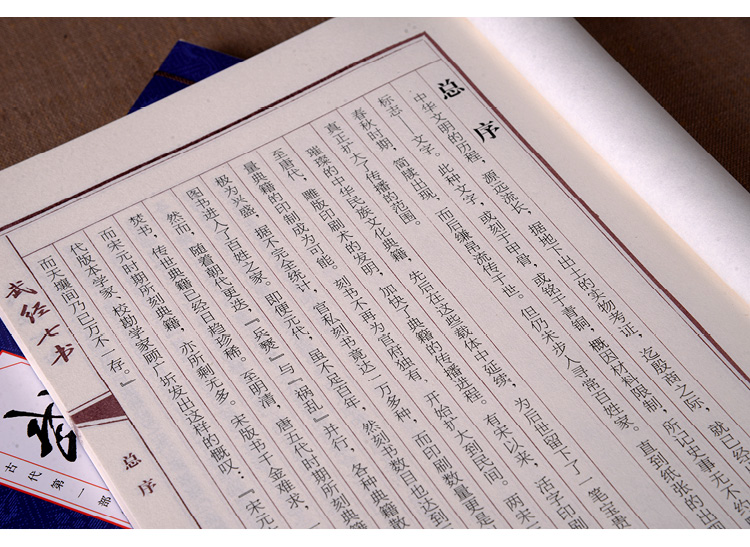 总序
中华文明的历程，源远流长，据地下出土的实物考证，迄殷商之际，就已经
标志——文字。此种文字，或刻于甲骨，或铭于青铜，概因材料限制，所记史事无不约
春秋时期，简牍出现，而后缣帛流传于世。但仍未步入寻常百姓家。直到纸张的出
真正扩大了传播的范围。
璀璨的中华民族文化典籍，先后在这些载体中延续，为后世留下了一笔宝贵
至唐代，雕版印刷术的发明，加快了典籍的传播进程。有宋以来，活字印刷
量典籍的印制成为可能。刻书不再为官府独有，开始扩大到民间。两宋
极为兴盛，据不完全统计，官私刻书竟达一万多种，而印刷数量更是
图书进入了百姓之家。即便元代，虽不足百年，然刻书数目也达到
然而，随着朝代更迭，『兵燹』与『祸乱』并行，各种典籍散
焚书，传世典籍已经日趋珍稀。至明清，唐五代时期所刻典籍
而宋元时期所刻典籍，亦所剩无多。宋版书千金难求，
代版本学家、校勘学家顾广圻发出这样的概叹：『宋元
而天壤间乃已万不一存。』
武经七书
总序
武
古代第一部